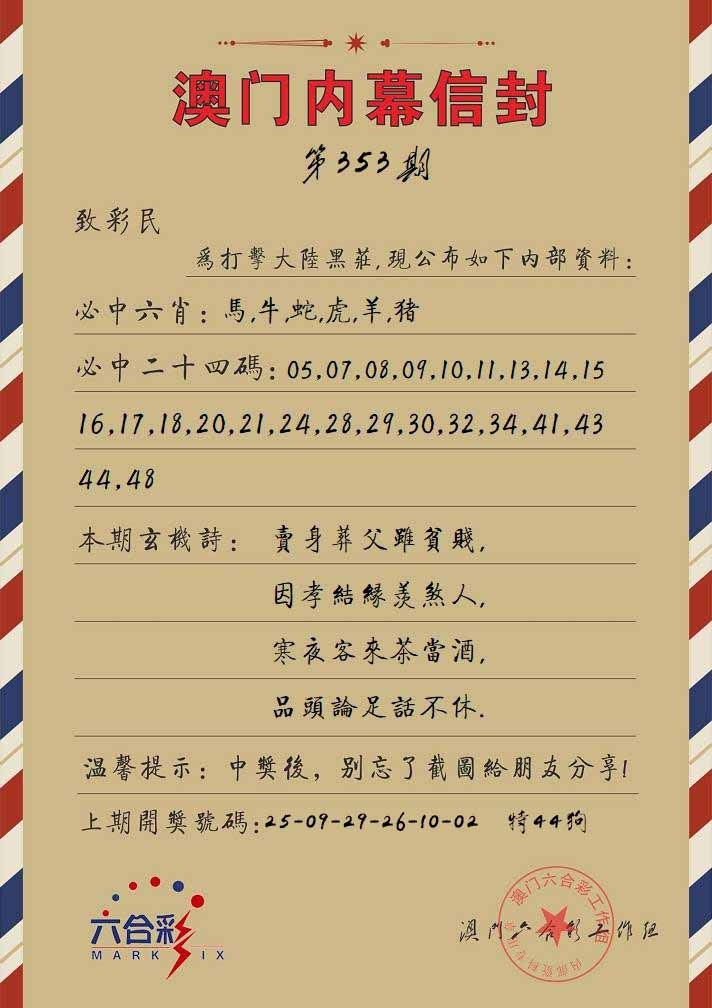 澳门内幕信封
第353期
致彩民
爲打擊大陸黑莊,現公布如下内部資料:
必中六肖:馬,牛,蛇,虎,羊,猪
必中二十四碼:05,07,08,09,10,11,13,14,15
16,17,18,20,21,24,28,29,30,32,34,41,43
44,48
本期玄機詩: 賣身葬父雖貧賤,
因孝結緣羡煞人,
寒夜客來茶當酒,
品頭論足話不休.
温馨提示:中獎後,别忘了截圖給朋友分享!
上期開獎號碼:25-09-29-26-10-02 特44狗
六合彩
MARK SIX
澳门六合彩工作组
澳门六合彩工作组